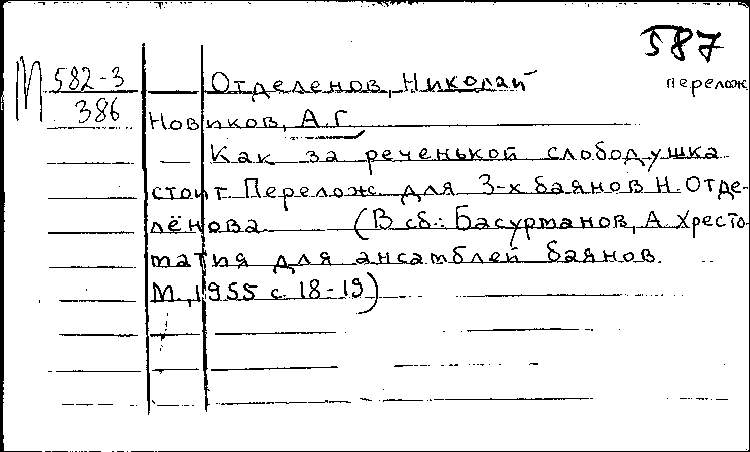 587
перелож
М 582-3
386
Отделенов, Николай
Новиков, А.Г.
Как за реченькой слободушка
стоит Перелож для 3-х баянов Н. Отде-
лёнова (В сб.: Басурманов, А. Хресто-
матия для ансамблей баянов.
М., 1955 с. 18-19)